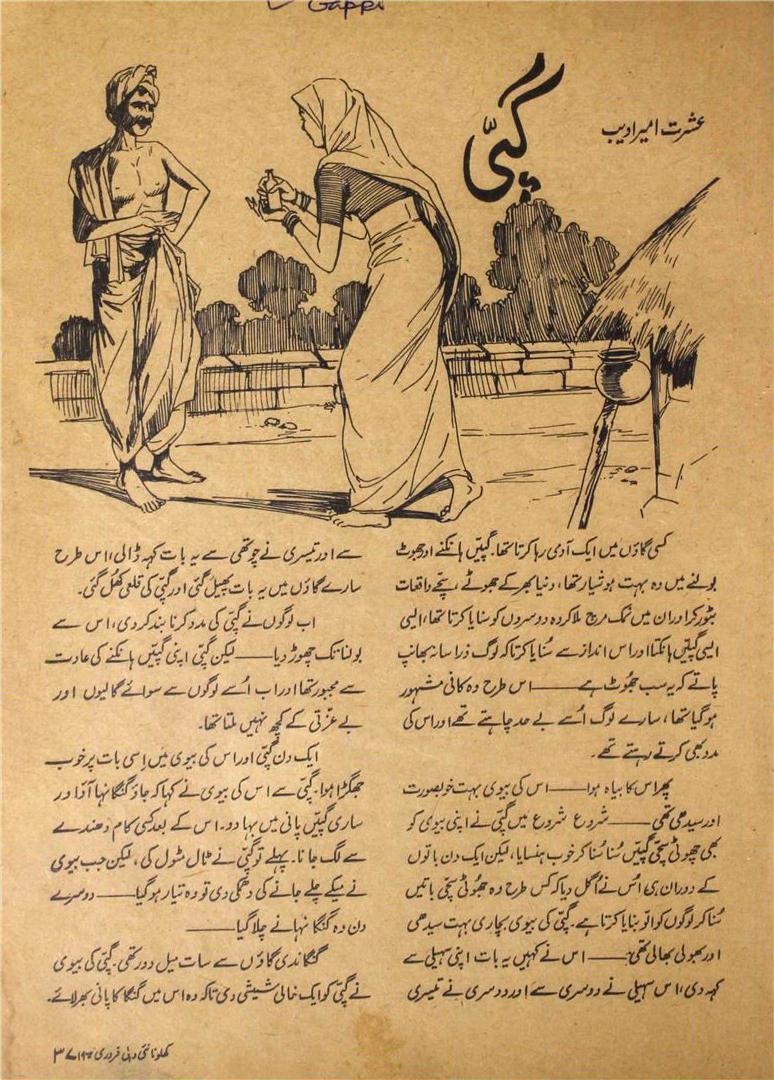 Gappi
گپّی
عشرت امیر ادیب
کسی گاؤں میں ایک آدمی رہا کرتا تھا۔ گپّیں ہانکنے اور جھوٹ
بولنے میں وہ بہت ہوشیار تھا، دنیا بھر کے جھوٹے سچّے واقعات
بٹور کر اور ان میں نمک مرچ ملا کر وہ دوسروں کو سنایا کرتا تھا، ایسی
ایسی گپّیں ہانکتا اور اس انداز سے سُنایا کرتا کہ لوگ ذرا سا نہ بھانپ
پاتے کہ یہ سب جھُوٹ ہے —— اس طرح وہ کافی مشہور
ہو گیا تھا، سارے لوگ اُسے بے حد چاہتے تھے اور اس کی
مدد بھی کرتے رہتے تھے۔
پھر اس کا بیاہ ہوا —— اس کی بیوی بہت خوبصورت
اور سیدھی تھی —— شروع شروع میں گپّی نے اپنی بیوی کو
بھی جھوٹی سچّی گپّیں سُنا سُنا کر خوب ہنسایا، لیکن ایک دن باتوں
کے دوران ہی اس نے اُگل دیا کہ کس طرح وہ جھُوٹی سچّی باتیں
سُنا کر لوگوں کو اُلّو بنایا کرتا ہے۔ گپّی کی بیوی بچاری بہت سیدھی
اور بھولی بھالی تھی —— اس نے کہیں یہ بات اپنی سہیلی سے
کہہ دی، اس سہیلی نے دوسری سے اور دوسری نے تیسری
سے اور تیسری نے چوتھی سے یہ بات کہہ ڈالی، اس طرح
سارے گاؤں میں یہ بات پھیل گئی اور گپّی کی قلعی کھُل گئی۔
اب لوگوں نے گپّی کی مدد کرنا بند کر دی، اس سے
بولنا تک چھوڑ دیا —— لیکن گپّی اپنی گپّیں ہانکنے کی عادت
سے مجبور تھا اور اب اُسے لوگوں سے سوائے گالیوں اور
بے عزّتی کے کچھ نہیں ملتا تھا۔
ایک دن گپّی اور اس کی بیوی میں اِسی بات پر خوب
جھگڑا ہوا۔ گپّی سے اس کی بیوی نے کہا کہ جاؤ گنگا نہا آؤ اور
ساری گپّیں پانی میں بہا دو۔ اس کے بعد کسی کام دھندے
سے لگ جانا۔ پہلے تو گپّی نے ٹال مٹول کی، لیکن جب بیوی
نے میکے چلے جانے کی دھمکی دی تو وہ تیار ہو گیا —— دوسرے
دن وہ گنگا نہانے چلا گیا ——
گنگا ندی گاؤں سے سات میل دور تھی۔ گپّی کی بیوی
نے گپّی کو ایک خالی شیشی دی تاکہ وہ اس میں گنگا کا پانی بھر لائے۔
کھلونا نئی دہلی فروری ۳۷